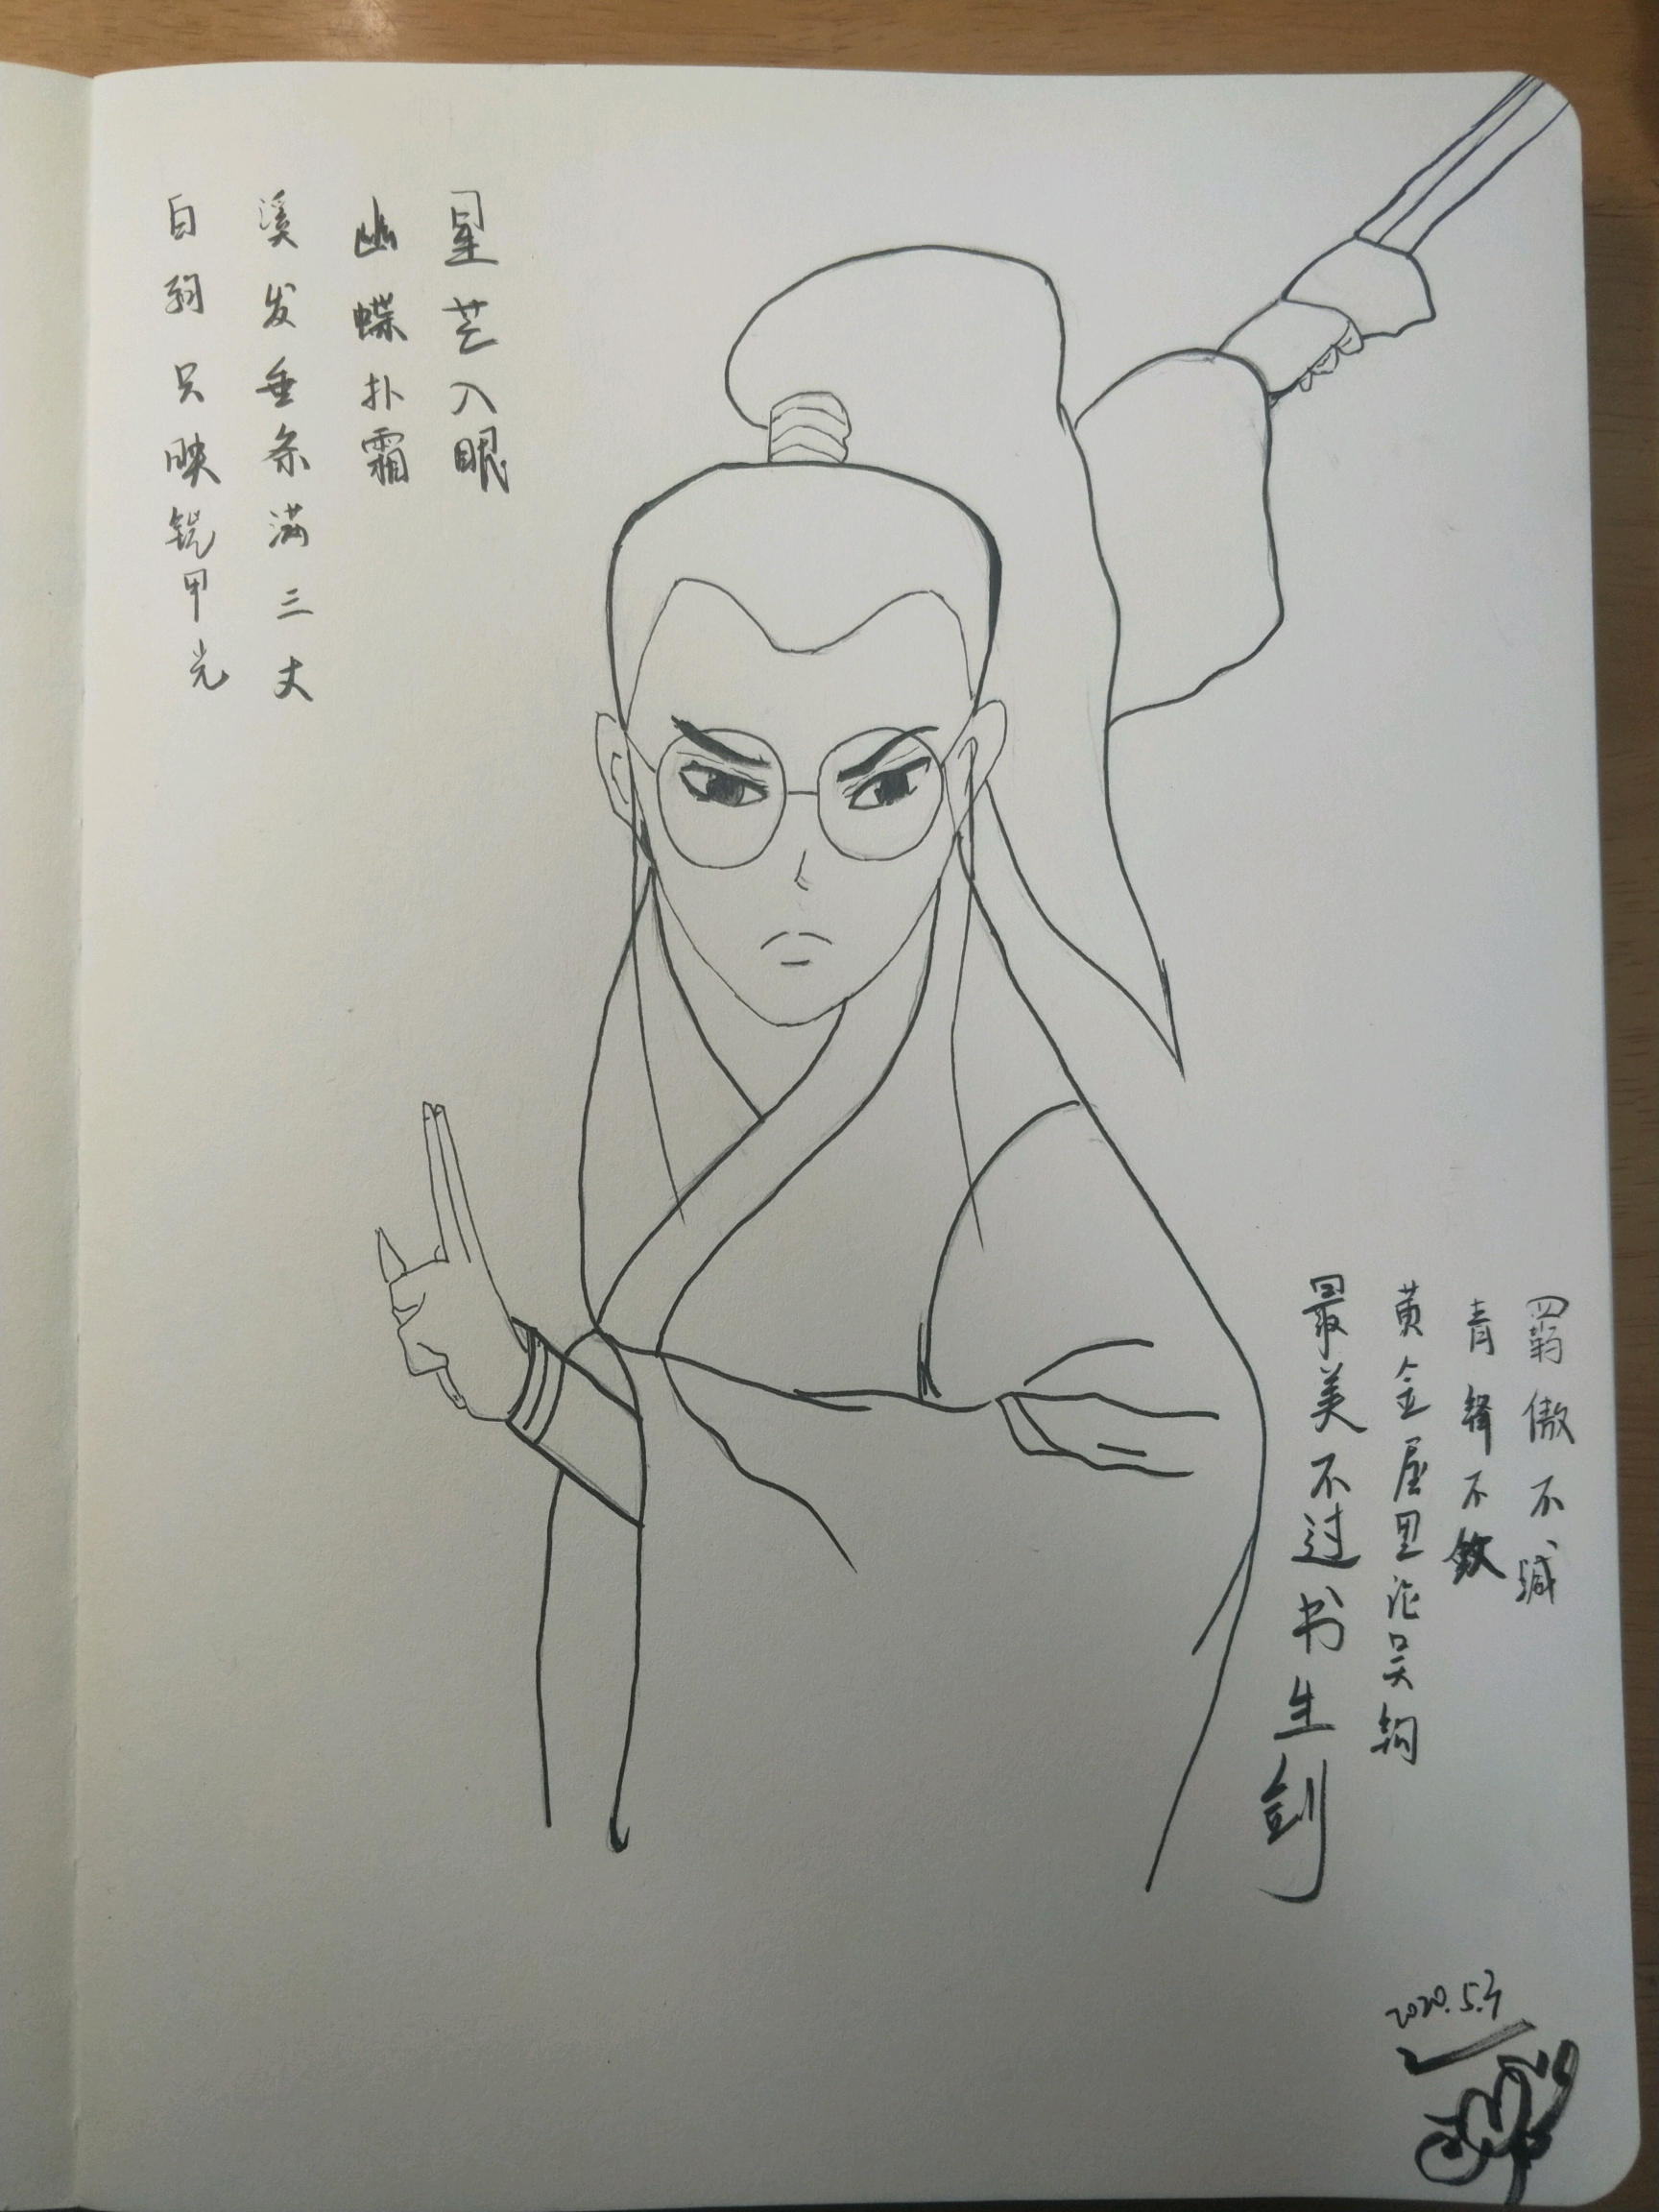 星芒入眼
幽蝶扑霜
溪发垂条满三丈
白驹只映铠甲光
羁傲不缄
青锋不敛
黄金屋里论吴钩
最美不过书生剑
2020.5.3